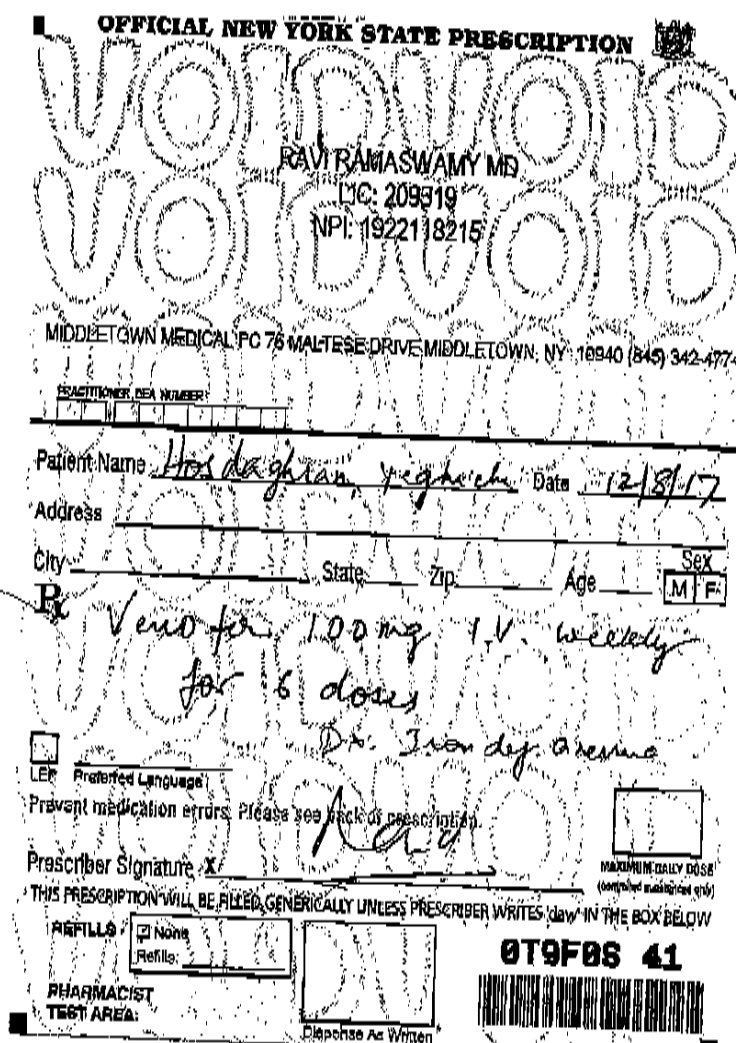 OFFICIAL NEW YORK STATE PRESCRIPTION
VOIDVOID
VOIDVOID
RAVI RAMASWAMY MD
LIC: 209319
NPI: 1922118215
MIDDLETOWN MEDICAL PC 76 MALTESE DRIVE MIDDLETOWN, NY 10940 (845) 342-4774
PRACTITIONER DEA NUMBER
Patient Name Hosdaghian, Date 12/8/17
Address
City State Zip Age Sex
M F
Rx Venofer 100 mg I.V. weekly
for 6 doses
Dx. Iron def. anemia
LEP Preferred Language
Prevent medication errors. Please see back of prescription.
Prescriber Signature X
MAXIMUM DAILY DOSE
(controlled substances only)
THIS PRESCRIPTION WILL BE FILLED GENERICALLY UNLESS PRESCRIBER WRITES 'daw' IN THE BOX BELOW
REFILLS None
Refills:
PHARMACIST
TEST AREA:
Dispense As Written
0T9F0S 41